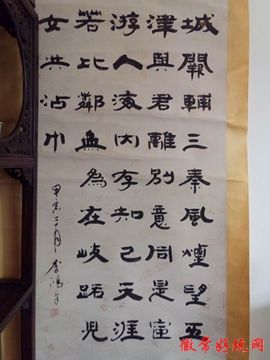 城闕輔三秦風煙望五
津與君離別意同是宦
游人海內存知己天涯
若比鄰無為在歧路兒
女共沾巾
三月